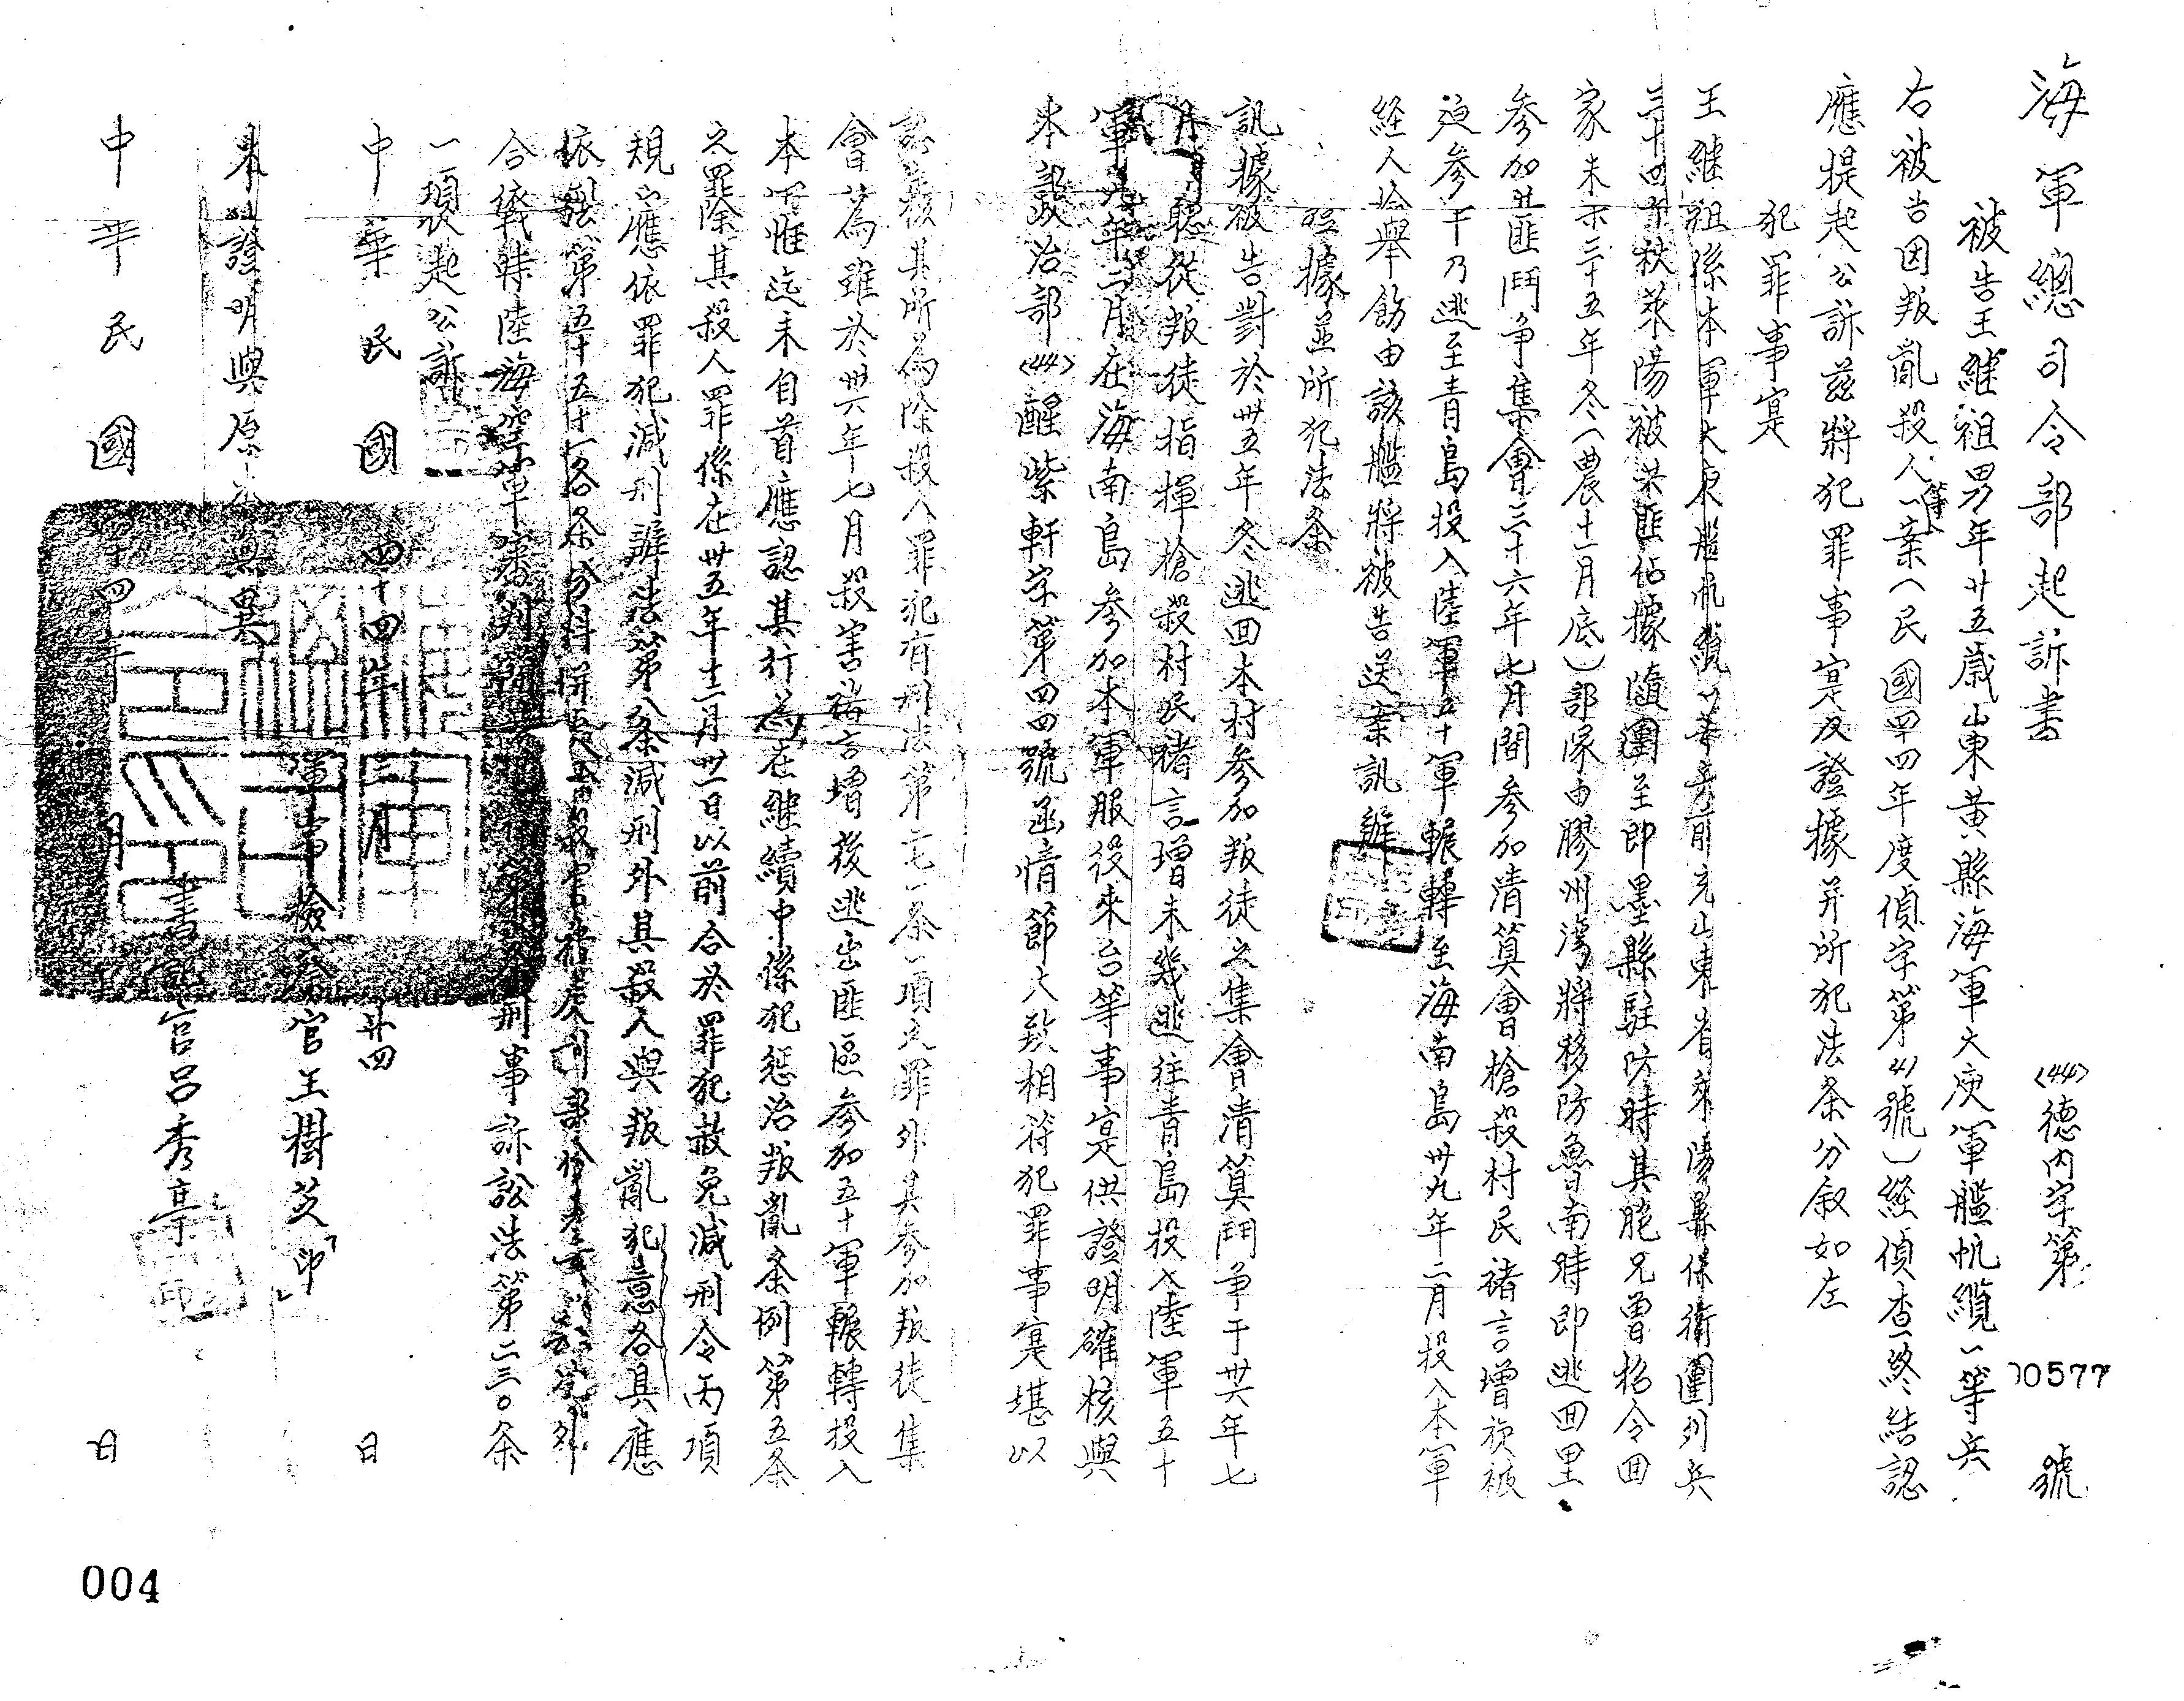 海軍總司令部起訴書 〈44〉德內字第00577號
被告王継祖男年廿五歲山東黃縣海軍大庾軍艦帆纜一等兵
右被告因叛亂殺人等一案（民國四四年度偵字第41號）経偵查終結認
應提起公訴茲將犯罪事寔及證據并所犯法条分叙如左
犯罪事寔
王継祖係本軍大庾艦帆纜一等兵前充山東省萊陽縣保衛團列兵
三十四年秋萊陽被共匪佔據隨團至即墨縣駐防時其胞兄曾招令回
家未示三十五年冬（農十一月底）部隊由膠州灣將移防魯南時即逃回里
参加共匪鬥争集會三十六年七月間参加清算會槍殺村民褚言增旋被
迫参干乃逃至青島投入陸軍五十軍輾轉至海南島卅九年二月投入本軍
経人檢舉飭由該艦將被告送案訊辦
證據並所犯法条
訊據被告對於卅五年冬逃回本村参加叛徒之集會清算鬥争于卅六年七
月聽從叛徒指揮槍殺村民褚言增未幾逃往青島投入陸軍五十
軍卅九年二月在海南島参加本軍服役來台等事寔供證明確核與
本部政治部〈44〉醒紫軒字第四四號函情節大致相符犯罪事寔堪以
認定核其所為除殺人罪犯有刑法第二七一条一項之罪外其参加叛徒集
會之為雖於卅六年七月殺害褚言增後逃出匪區参加五十軍輾轉投入
本軍惟迄未自首應認其行為在継續中係犯懲治叛亂条例第五条
之罪除其殺人罪係在卅五年十二月卅一日以前合於罪犯赦免減刑令丙項
規定應依罪犯減刑辦法第八条減刑外其殺人與叛亂犯意各具應
依刑法第五十五十一各条分科併
合依戰時陸海空軍審判刑事訴訟法第二三〇条
一項提起公訴
中華民國四十四年三月廿四日
軍事檢察官王樹芝「印」
本件證明與原本無異
書記官呂秀亭
中華民國四十四年 月 日
004